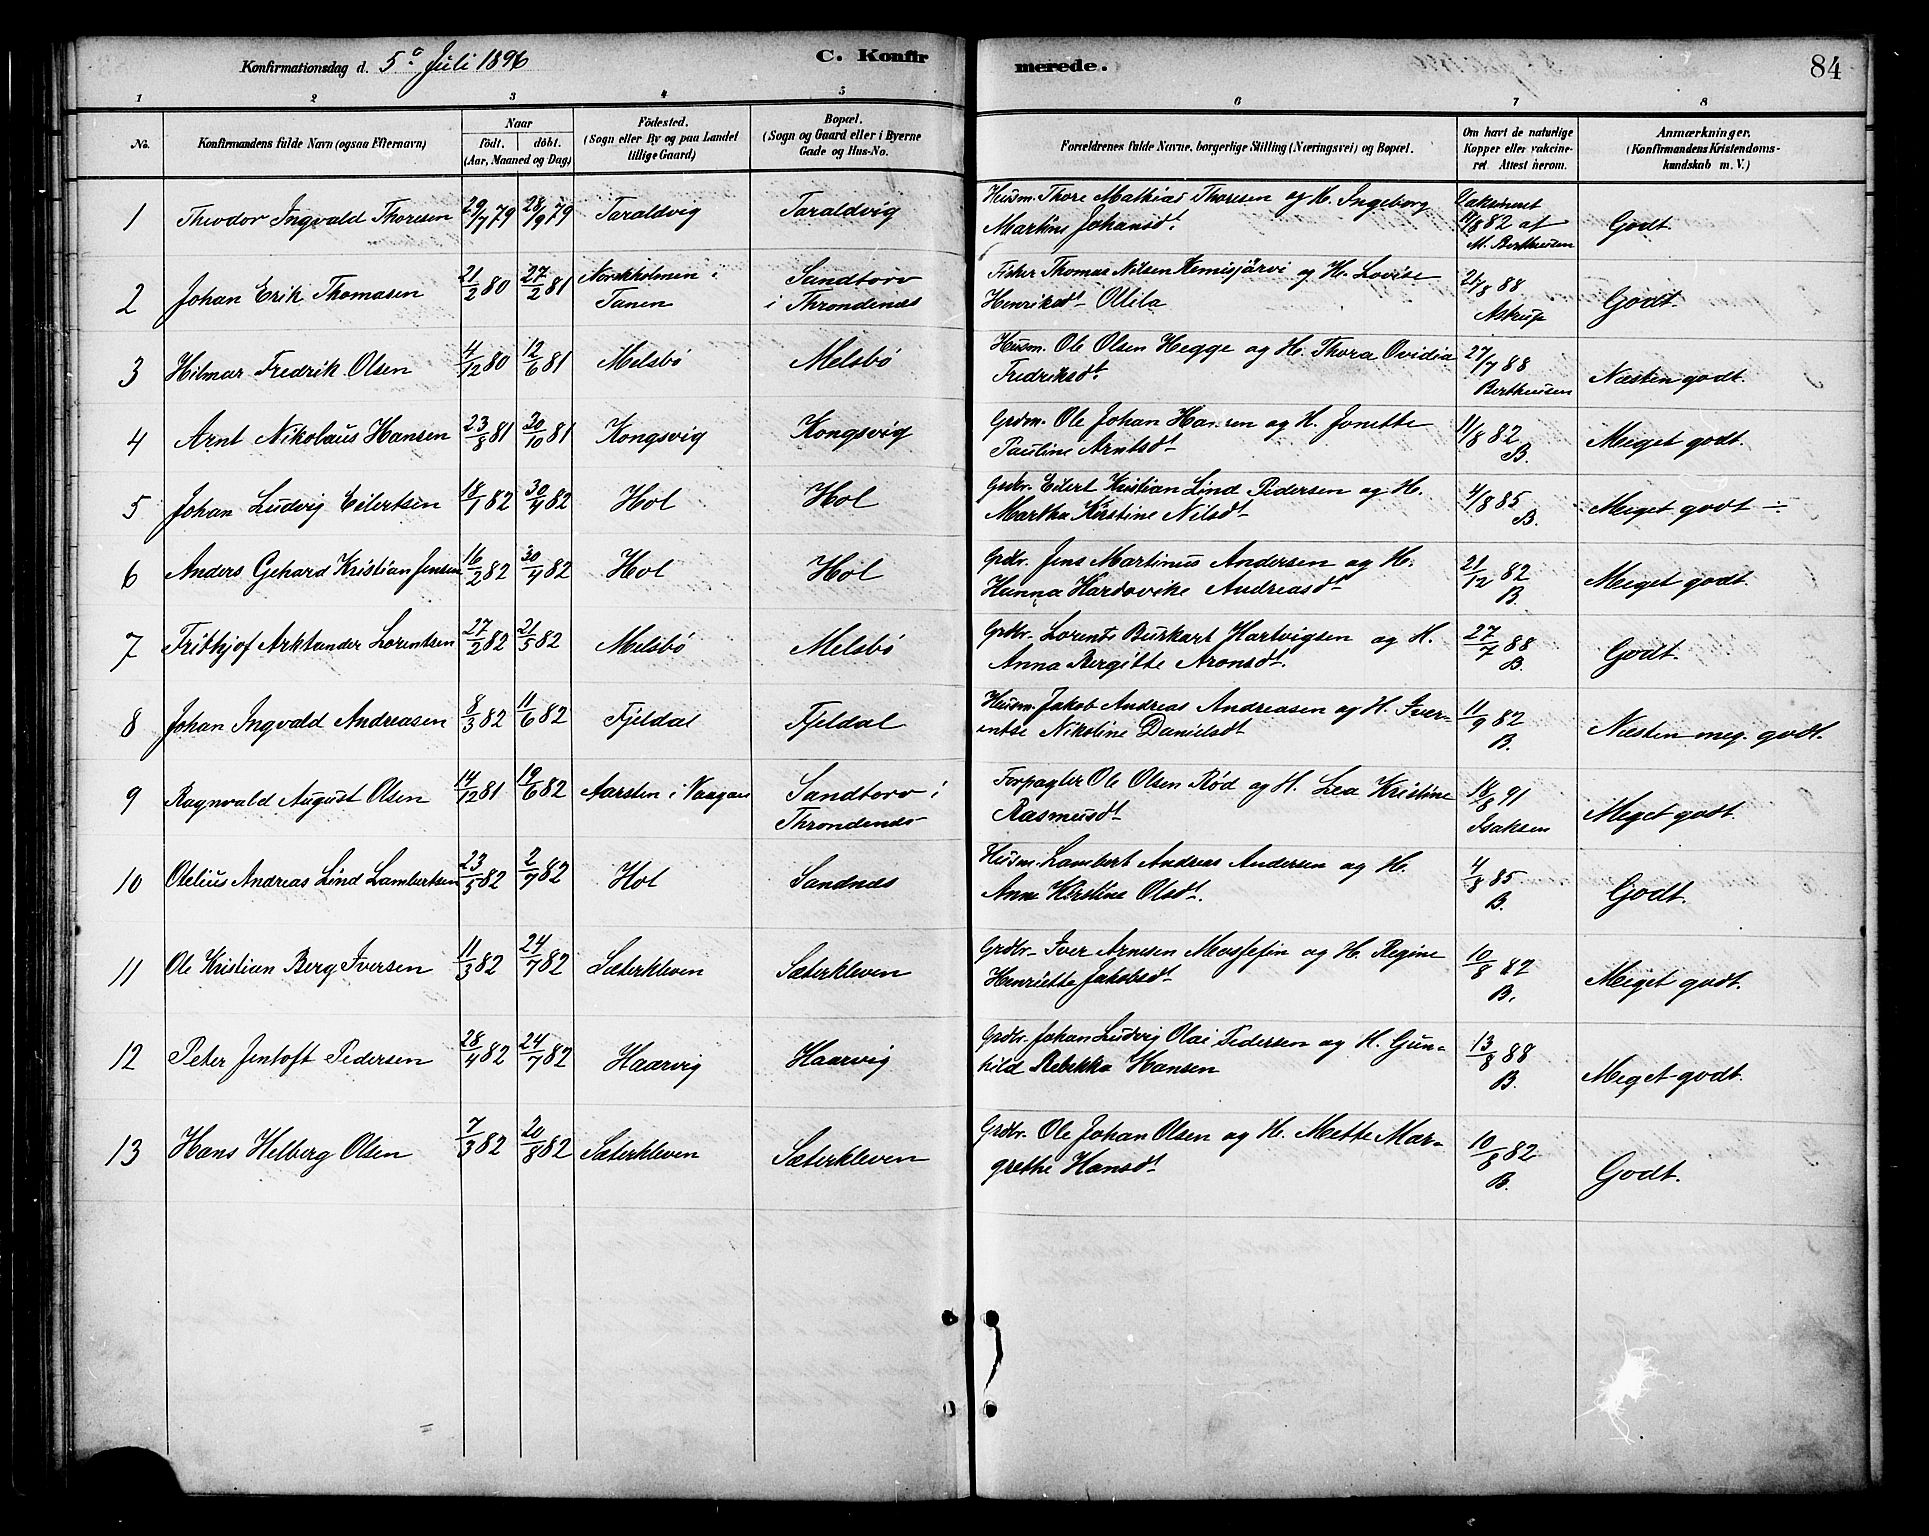 Konfirmationsdag d. 5te Juli 1896 C. Konfirmerede. 84
1 2 3 4 5 6 7 8
No. Konfirmandens fulde Navn (ogsaa Efternavn) Naar födt. döbt. (Aar, Maaned og Dag) Födested. (Sogn eller By og paa Landet tillige Gaard) Bopæl. (Sogn og Gaard eller i Byerne Gade og Hus-No. Forældrenes fulde Navne, borgerlige Stilling (Næringsvei) og Bopæl. Om havt de naturlige Kopper eller vakcineret Attest herom. Anmærkninger. (Konfirmandens Kristendomskundskab m. V.)
1 Theodor Ingvald Thoresen 29/7 79 28/9 79 Taraldvig Taraldvig Husm. Thore Mathias Thoresen og H. Ingeborg Vaksineret
Martine Johansdt. 14/8 82 af M. Bertheusen Godt.
2 Johan Erik Thomasen 21/2 80 27/2 81 Norskholmen i Tanen Sandtorv i Throndenæs Fisker Thomas Nilsen Kemisjärvi og H. Lovise
Henriksdt. Ollila 24/8 88 Astrup Godt.
3 Hilmar Fredrik Olsen 4/12 80 12/6 81 Melsbö Melsbö Husm. Ole Olsen Hegge og H. Thora Ovidia
Fredriksdt. 27/7 88 Bertheusen Næsten godt.
4 Arnt Nikolaus Hansen 23/8 81 30/10 81 Kongsvig Kongsvig Grdm. Ole Johan Hansen og H. Jonette
Pauline Arntsdt. 11/8 82 B. Meget godt.
5 Johan Ludvig Eilertsen 18/1 82 30/4 82 Hol Hol Grdbr. Eilert Kristian Lind Pedersen og H.
Martha Kirstine Nilsdt. 4/8 85 B. Meget godt ÷
6 Anders Gehard Kristian Jensen 16/2 82 30/4 82 Hol Hol Grdbr. Jens Martinus Andersen og H.
Hanna Hardovike Andreasdt. 21/12 82 B. Meget godt.
7 Frithjof Arktander Lorentsen 27/2 82 21/5 82 Melsbö Melsbö Grdbr. Lorents Burkart Hartvigsen og H.
Anna Bergitte Aronsdt. 27/7 88 B. Godt.
8 Johan Ingvald Andreasen 8/3 82 11/6 82 Fjeldal Fjeldal Husm. Jakob Andreas Andreasen og H. Iver-
entse Nikoline Danielsdt 11/9 82 B. Næsten meg. godt.
9 Ragnvald August Olsen 14/12 81 19/6 82 Aarsten i Vaagan Sandtorv i Throndenæs Forpagter Ole Olsen Rød og H. Lea Kristine
Rasmusdt. 18/8 91 Isaksen Meget godt.
10 Otelius Andreas Lind Lambertsen 23/5 82 2/7 82 Hol Sandnæs Husm. Lambert Andreas Andersen og H.
Anne Kirstine Olsdt. 4/8 85 B. Godt.
11 Ole Kristian Berg Iversen 11/3 82 24/7 82 Sæterkleven Sæterkleven Grdbr. Iver Arnesen Mosjefin og H. Regine
Henriette Jakobsdt. 10/8 82 B. Meget godt.
12 Peter Jentoft Pedersen 28/4 82 24/7 82 Haarvig Haarvig Grdbr. Johan Ludvig Olai Pedersen og H. Gun-
hild Rebekka Hansen 13/8 88 B. Meget godt.
13 Hans Helberg Olsen 7/3 82 20/8 82 Sæterkleven Sæterkleven Grdbr. Ole Johan Olsen og H. Mette Mar-
grethe Hansdt. 10/8 82 B. Godt.